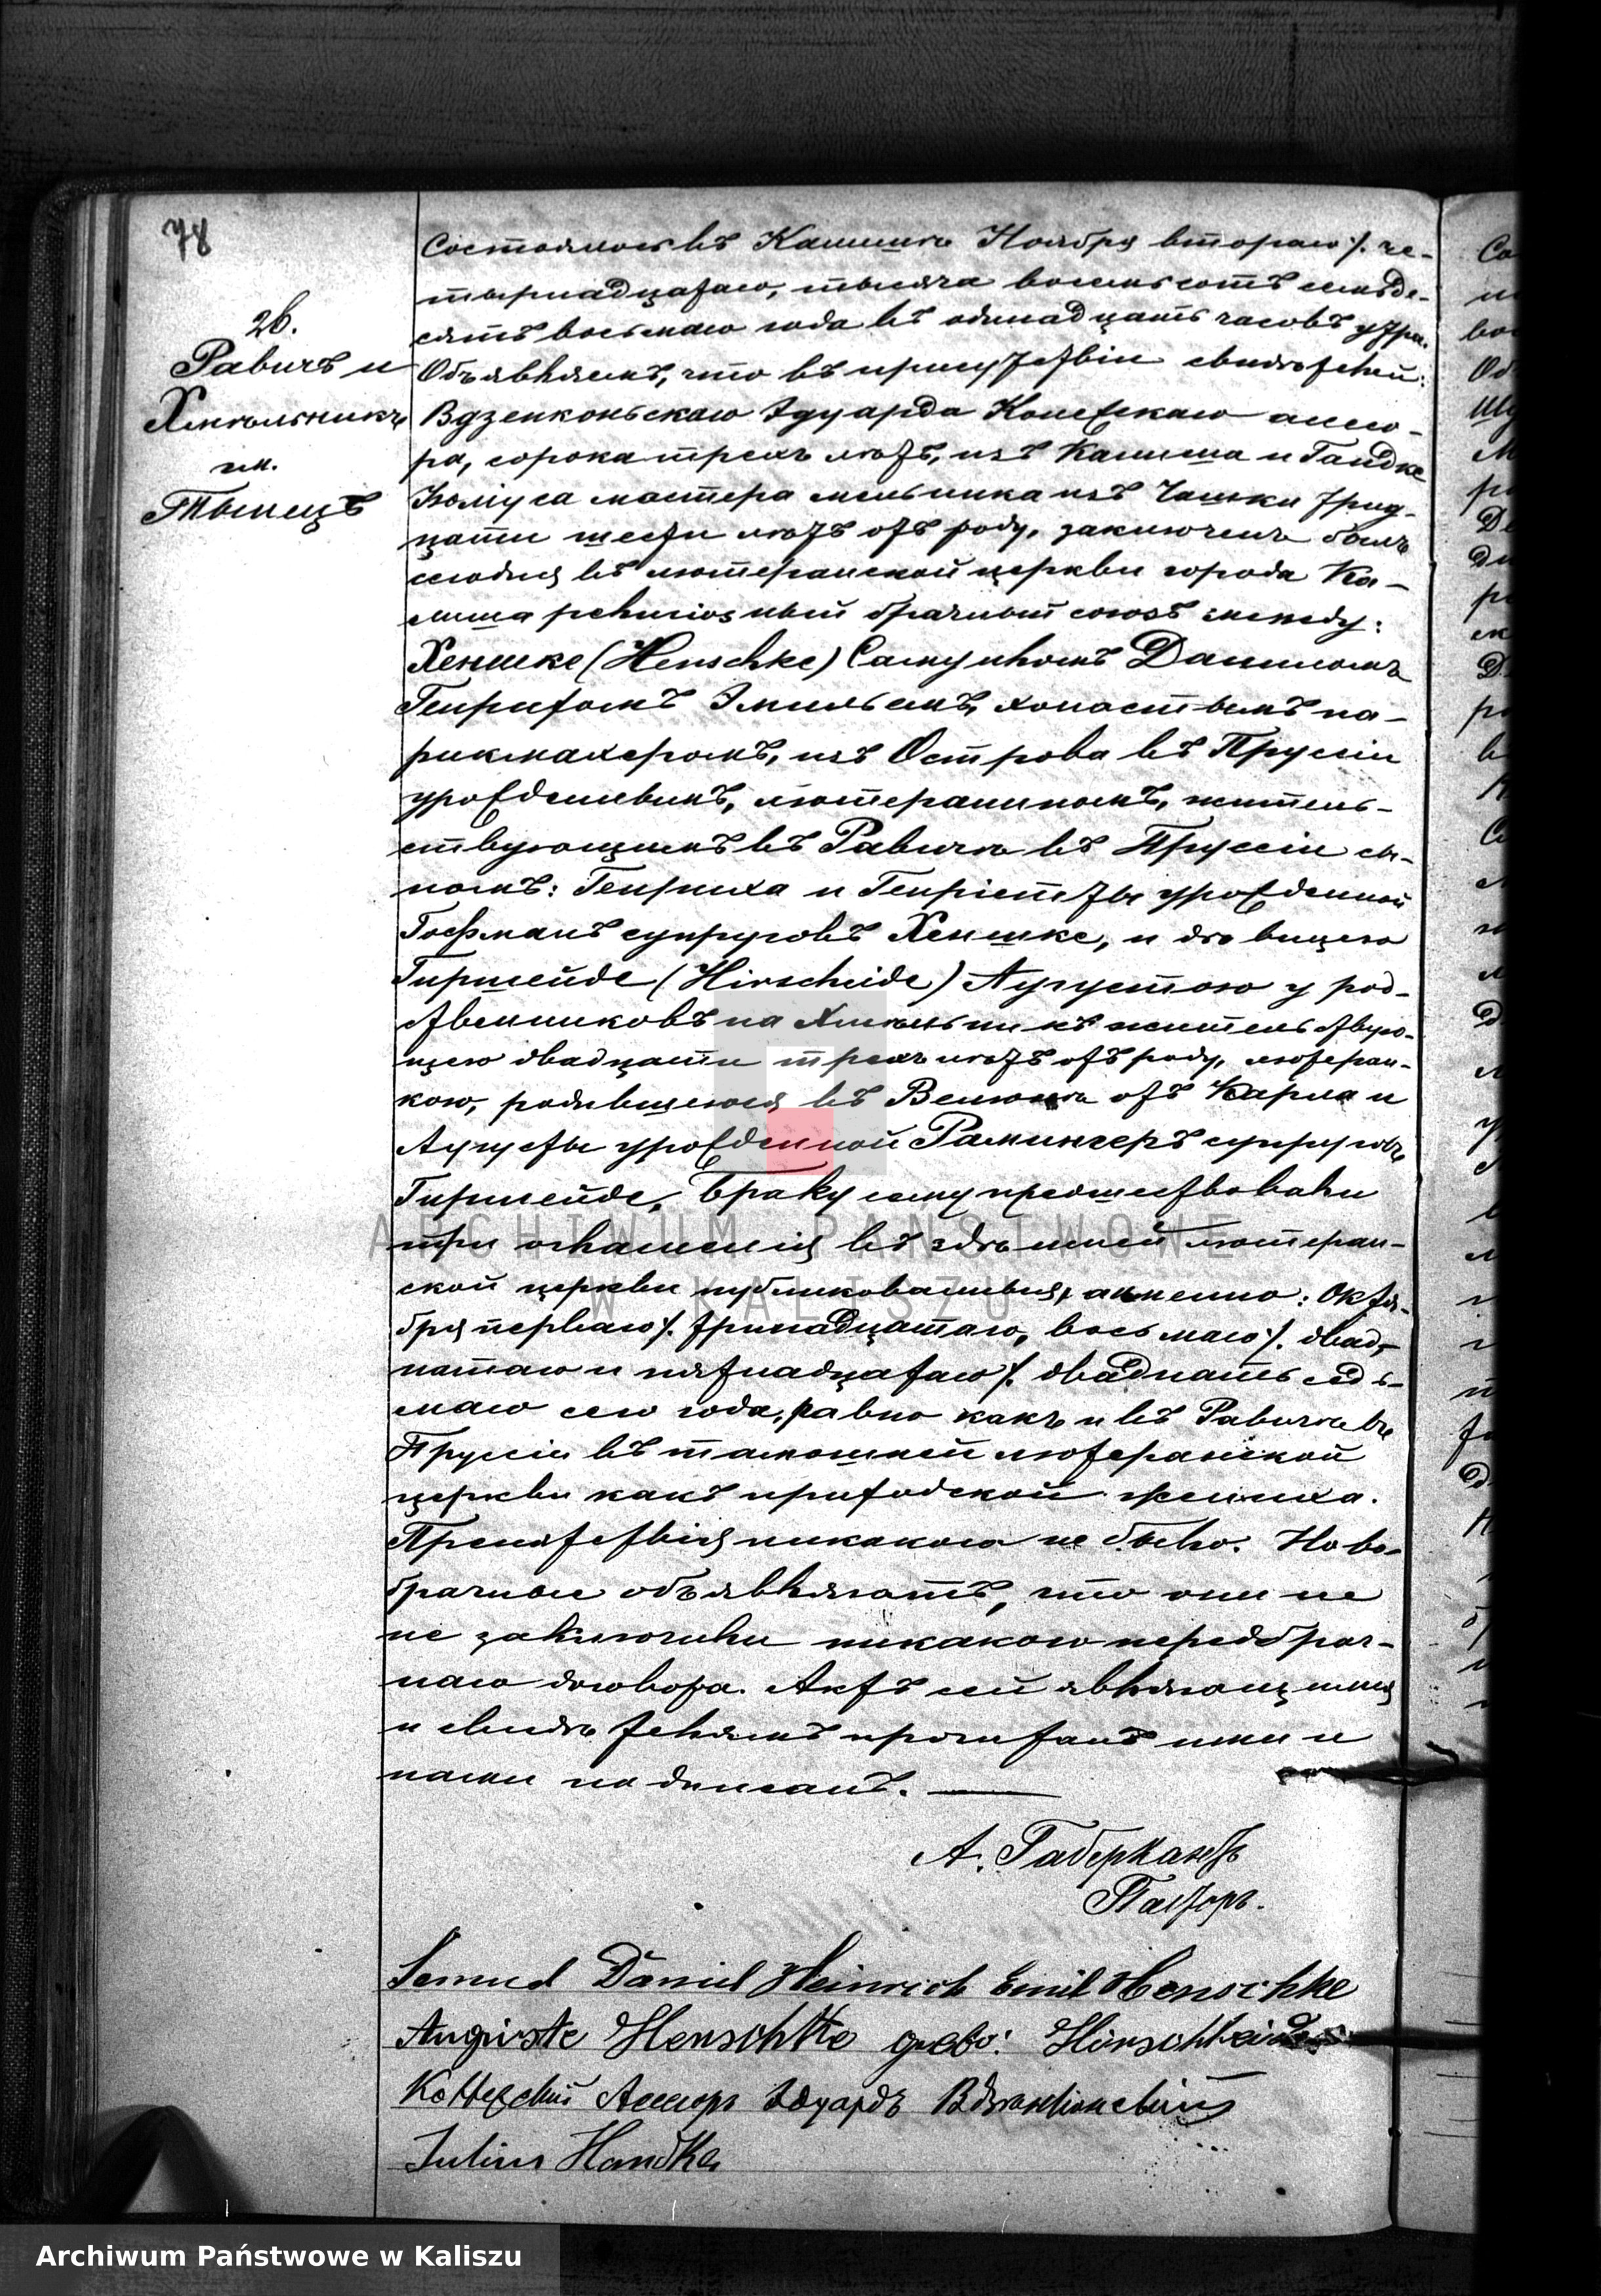 78
26.
Равичъ и
Хмѣльникъ
гм.
Тынецъ
Состоялось въ Калишѣ Ноября втораго /. че-
тырнадцатаго, тысяча восемьсотъ семьде-
сятъ восьмаго года въ одинадцать часовъ утра.
Объявляемъ, что въ присутствіи свидѣтелей:
Вдзенконьскаго Эдуарда Колежскаго ассео-
ра, сорока трехъ лѣтъ, изъ Калиша и Гандке
Юліуса мастера мельника изъ Чашки трид-
цати шести лѣтъ отъ роду, заключенъ былъ
сегодня въ лютеранской церкви города Ка-
лиша религіозный брачный союзъ между:
Хеншке (Henschke) Самуиломъ Даниломъ
Генрихомъ Эмильемъ, холостымъ па-
рикмахеромъ, изъ Острова въ Пруссіи
урожденнымъ, лютераниномъ, житель-
ствующимъ въ Равичѣ въ Пруссіи сы-
номъ: Генриха и Генріетты урожденной
Гофманъ супруговъ Хеншке, и дѣвицею
Гиршейде (Hirscheide) Аугустою у род-
ственниковъ на Хмѣльникѣ жительствую-
щею двадцати трехъ лѣтъ отъ роду, лютеран-
кою, родившеюся въ Велюнѣ отъ Карла и
Аугусты урожденной Рамингеръ супруговъ
Гиршейде. Браку сему предшествовали
три оглашенія въ здѣшней лютеран-
ской церкви публикованныя, а именно: Октя-
бря перваго /. тринадцатаго, восьмаго /. двад-
цатаго и пятнадцатаго /. двадцать седь-
маго сего года, равно какъ и въ Равичѣ въ
Пруссіи въ тамошней лютеранской
церкви какъ приходской жениха.
Препятствія никакого не было. Ново-
брачные объявляютъ, что они не
не заключили никакого передбрач-
наго договора. Актъ сей являющимся
и свидѣтелямъ прочитанъ ими и
нами подписанъ.
А. Габеркантъ
Пасторъ.
Samuel Daniel Heinrich Emil Henschke
Auguste Henschke geb: Hirschheide
Коллежскій Ассесоръ Эдуардъ Вдзѣнконскій
Julius Handke
ARCHIWUM PAŃSTWOWE
W KALISZU
Archiwum Państwowe w Kaliszu